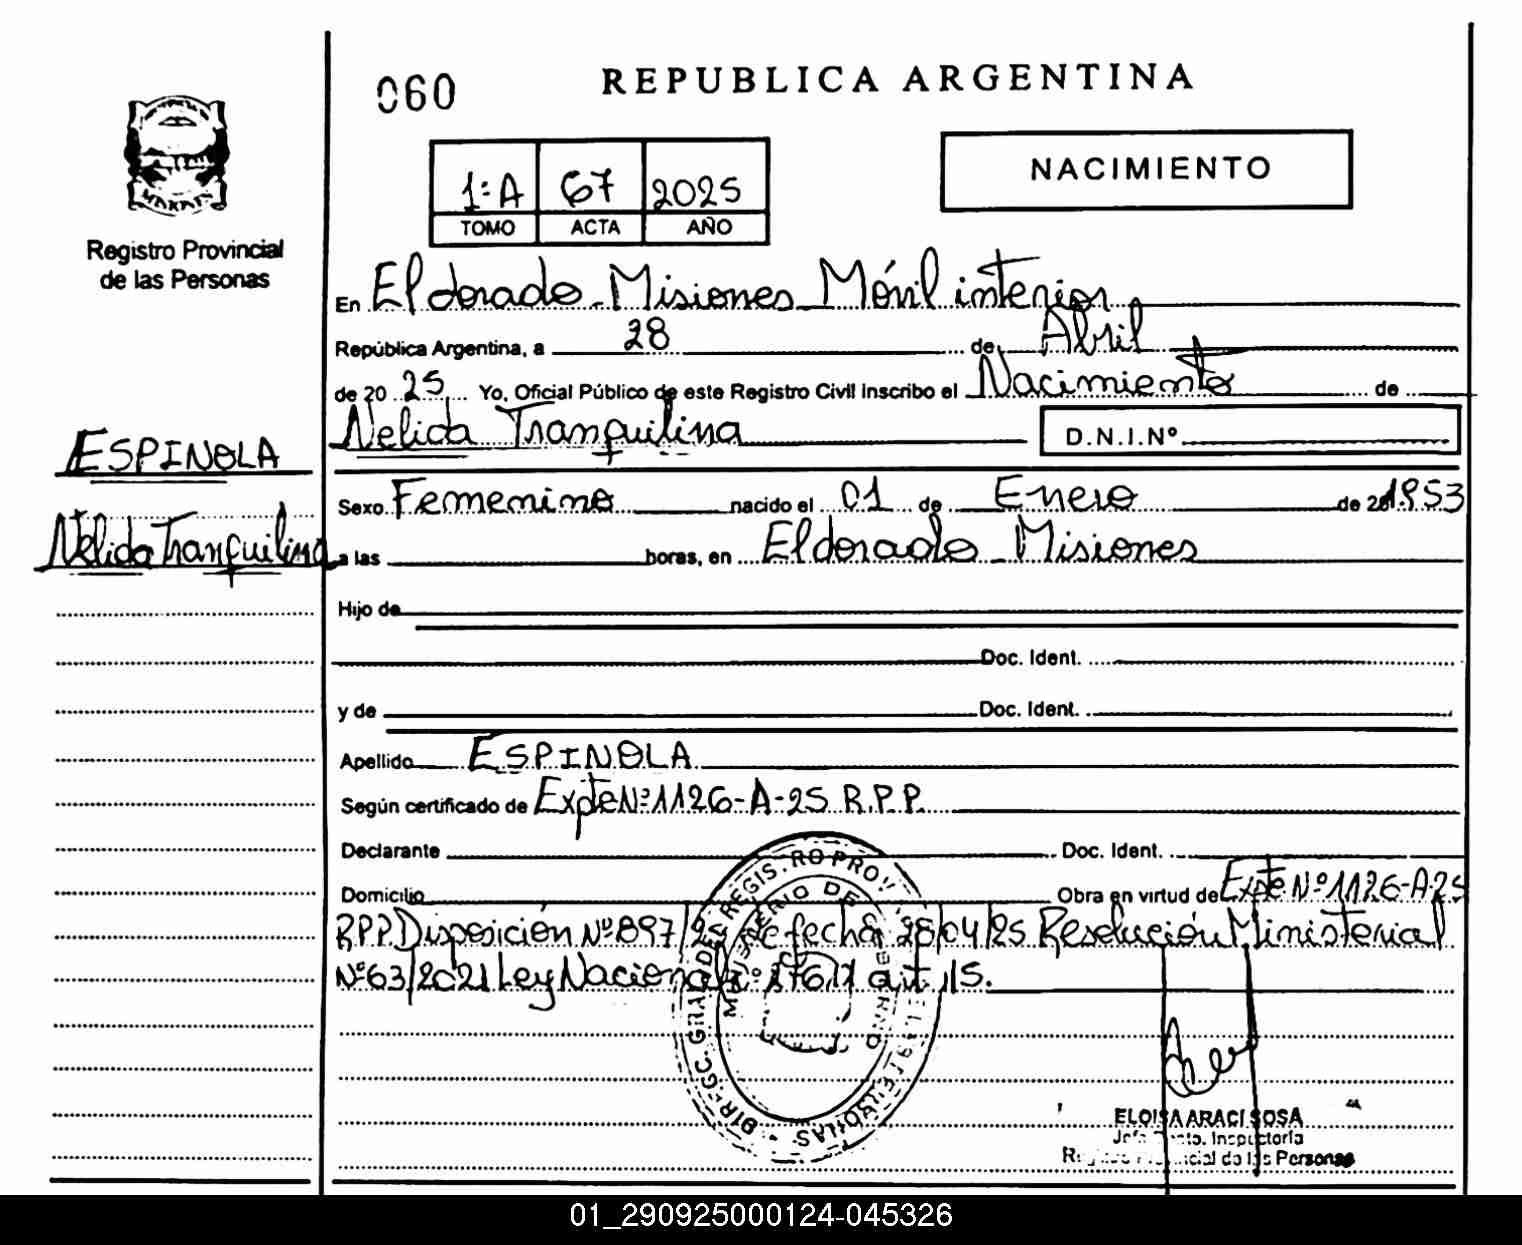 060
REPUBLICA ARGENTINA
NACIMIENTO
1:A 67 2025
TOMO ACTA AÑO
Registro Provincial
de las Personas
En Eldorado - Misiones Móvil interior
República Argentina, a 28 de Abril
de 20 25 Yo, Oficial Público de este Registro Civil inscribo el Nacimiento de
Nelida Tranquilina D.N.I.Nº
ESPINOLA
Nelida Tranquilina
Sexo Femenino nacido el 01 de Enero de 1953
a las horas, en Eldorado - Misiones
Hijo de
Doc. Ident.
y de Doc. Ident.
Apellido ESPINOLA
Según certificado de Expte Nº 1126-A-25 R.P.P.
Declarante Doc. Ident.
Domicilio Obra en virtud de Expte Nº 1126-A-25
RPP Disposición Nº 897/2 de fecha 28/04/25 Resolución Ministerial
Nº 63/2021 Ley Nacional art 15.
ELOISA ARACI SOSA
Inspectoria
de las Personas
01_290925000124-045326